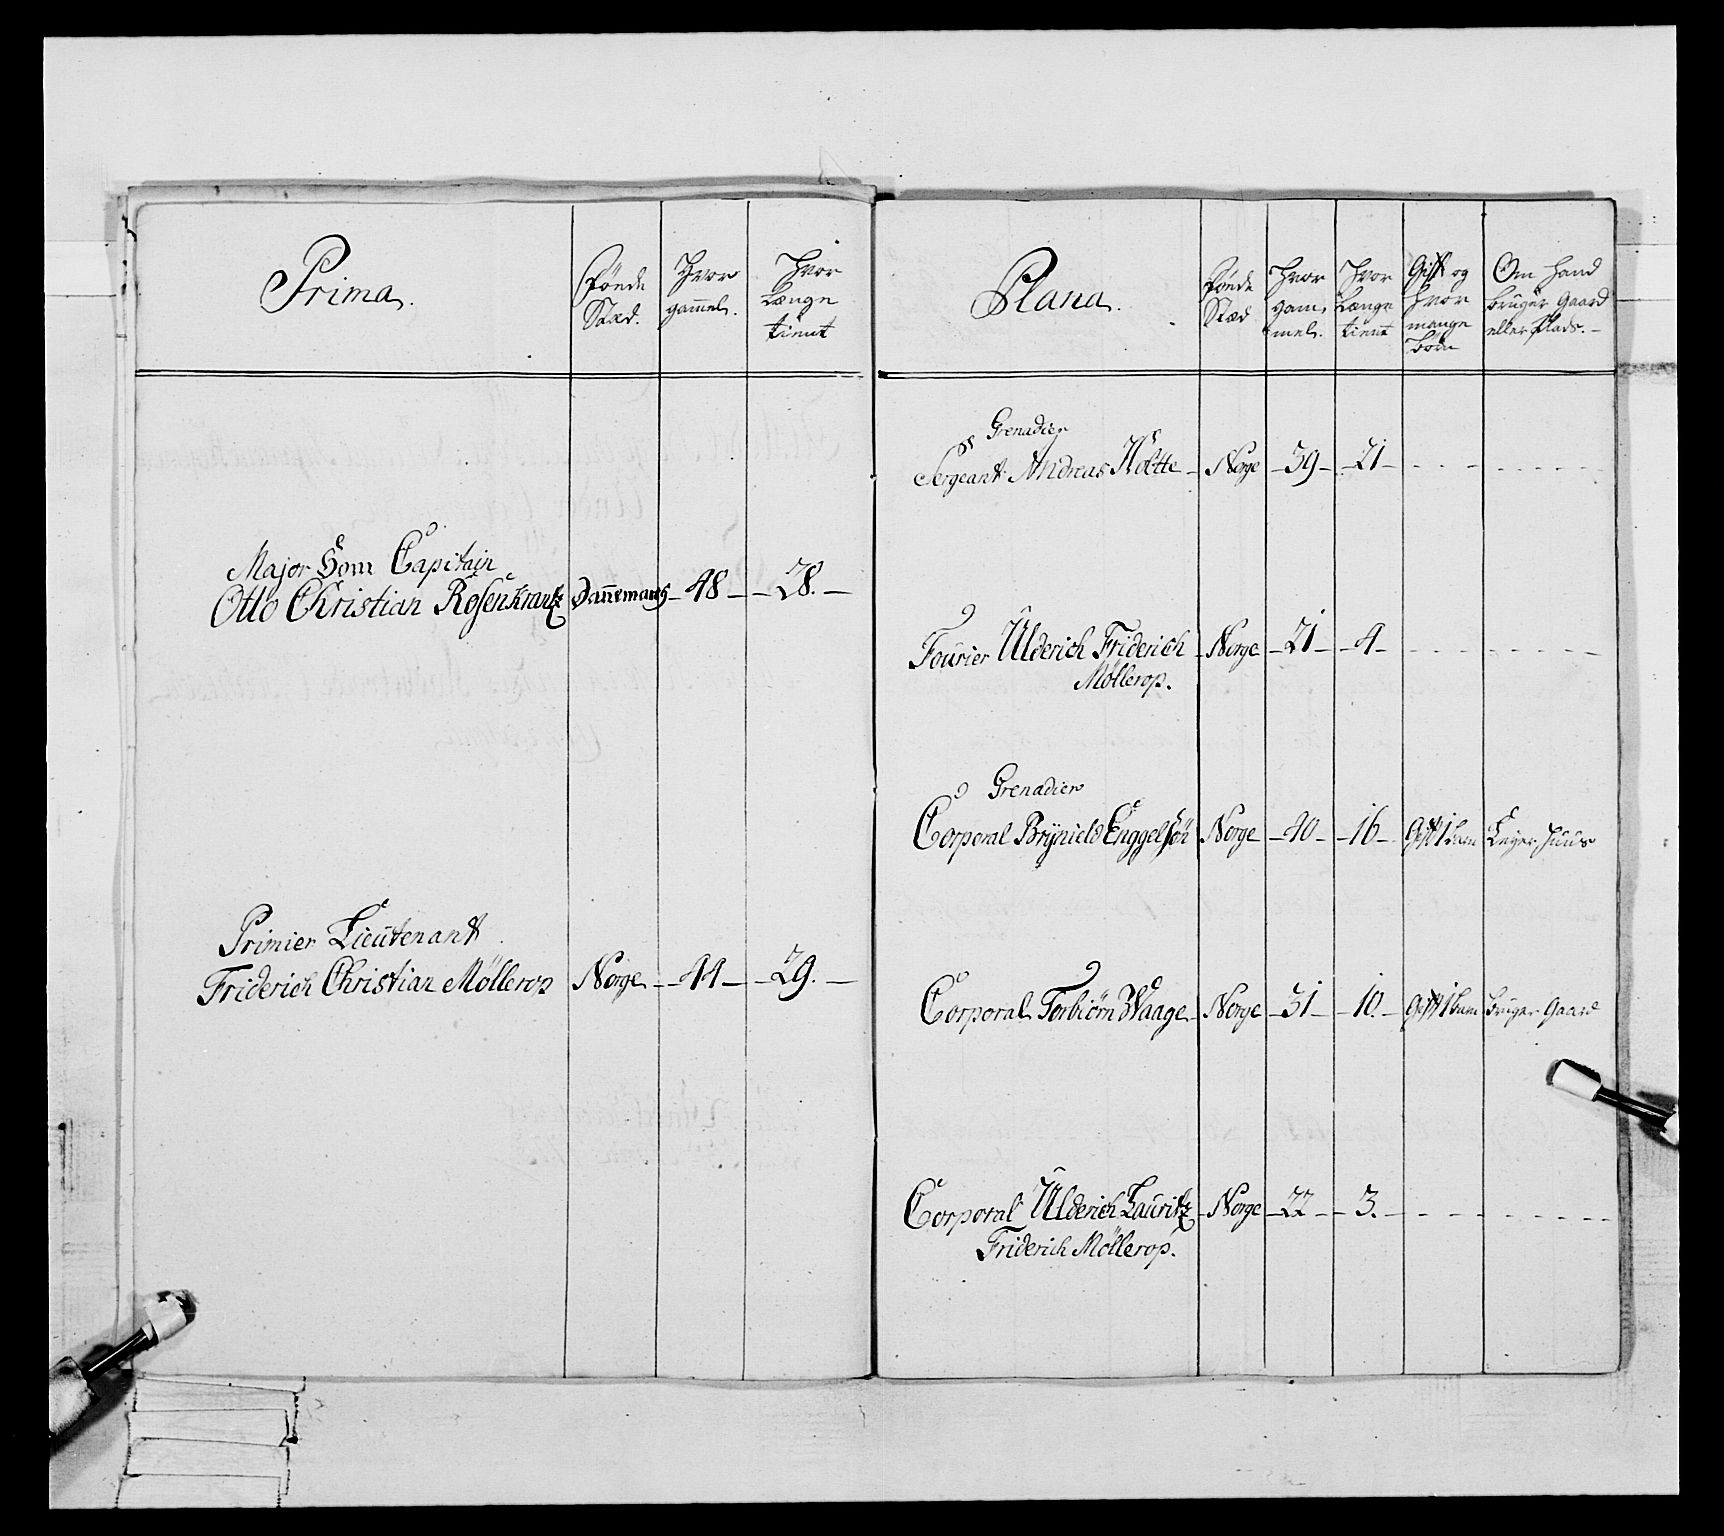 Prima.
Føde
Stæd.
Hvor
gam̄el.
Hvor
Længe
tient
Major Som Capitain
Otto Christian Rosenkrantz Dan̄emarg - 48 - - 28. -
Primier Lieutenant
Friderich Christian Møllerop Norge - 44 - - 29. -
Plana.
Føde
Stæd
Hvor
gam-
mel.
Hvor
Længe
tient
Gift og
hvor
mange
Børn
Om hand
bruger Gaard
eller Plads. -
Grenadier
Sergeant Andreas Holtte - Norge - 39 - - 21 -
Fourier Ulderich Friderich - Norge - 21 - - 4 -
Møllerop.
Grenadier
Corporal Brÿnield Enggelsøn Norge - 40 - - 16 - Gift 1 barn Leÿer Huus
Corporal Torbiørn Waage - Norge - 31 - - 10. - Gift 1 barn bruger Gaard
Corporal Ulderich Lauritz - Norge - 22 - - 3. -
Friderich Møllerop.